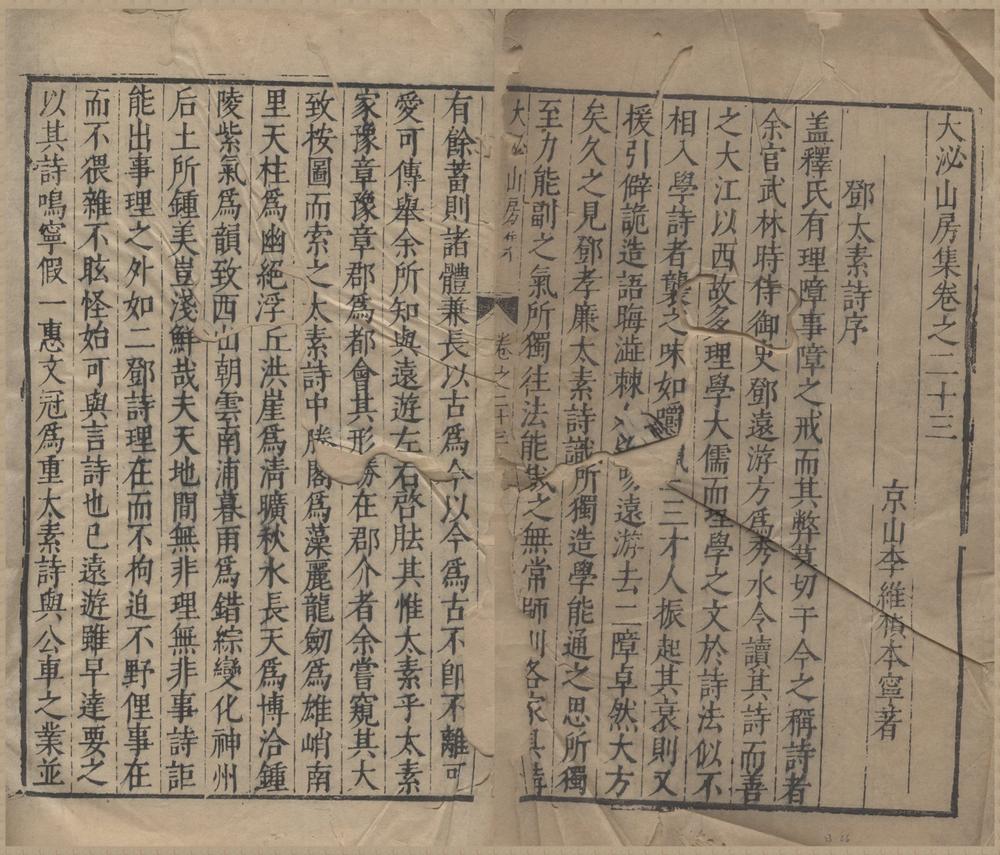 大泌山房集卷之二十三
京山李維楨本寧著
鄧太素詩序
盖釋氏有理障事障之戒而其弊莫切于今之稱詩者
余官武林時侍御史鄧遠游方為秀水令讀其詩而善
之大江以西故多理學大儒而理學之文於詩法似不
相入學詩者襲之味如嚼二三才人振起其衰則又
援引僻詭造語晦澁棘遠游去二障卓然大方
矣久之見鄧孝廉太素詩識所獨造學能通之思所獨
至力能副之氣所獨往法能裁之無常師則各家具
大泌山房集 卷之二十三
有餘蓄則諸體兼長以古為今以今為古不即不離可
愛可傳舉余所知與遠遊左右啓胠其惟太素乎太素
家豫章豫章郡為都會其形勝在郡介者余嘗窺其大
致按圖而索之太素詩中閣為藻麗龍劒為雄峭南
里天柱為幽絕浮丘洪崖為清曠秋水長天為博洽鍾
陵紫氣為韻致西山朝雲南浦暮雨為錯綜變化神州
后土所鍾美豈淺鮮哉夫天地間無非理無非事詩詎
能出事理之外如二鄧詩理在而不拘迫不野俚事在
而不猥雜不眩怪始可與言詩也已遠遊雖早達要之
以其詩鳴寧假一惠文冠為重太素詩與公車之業並